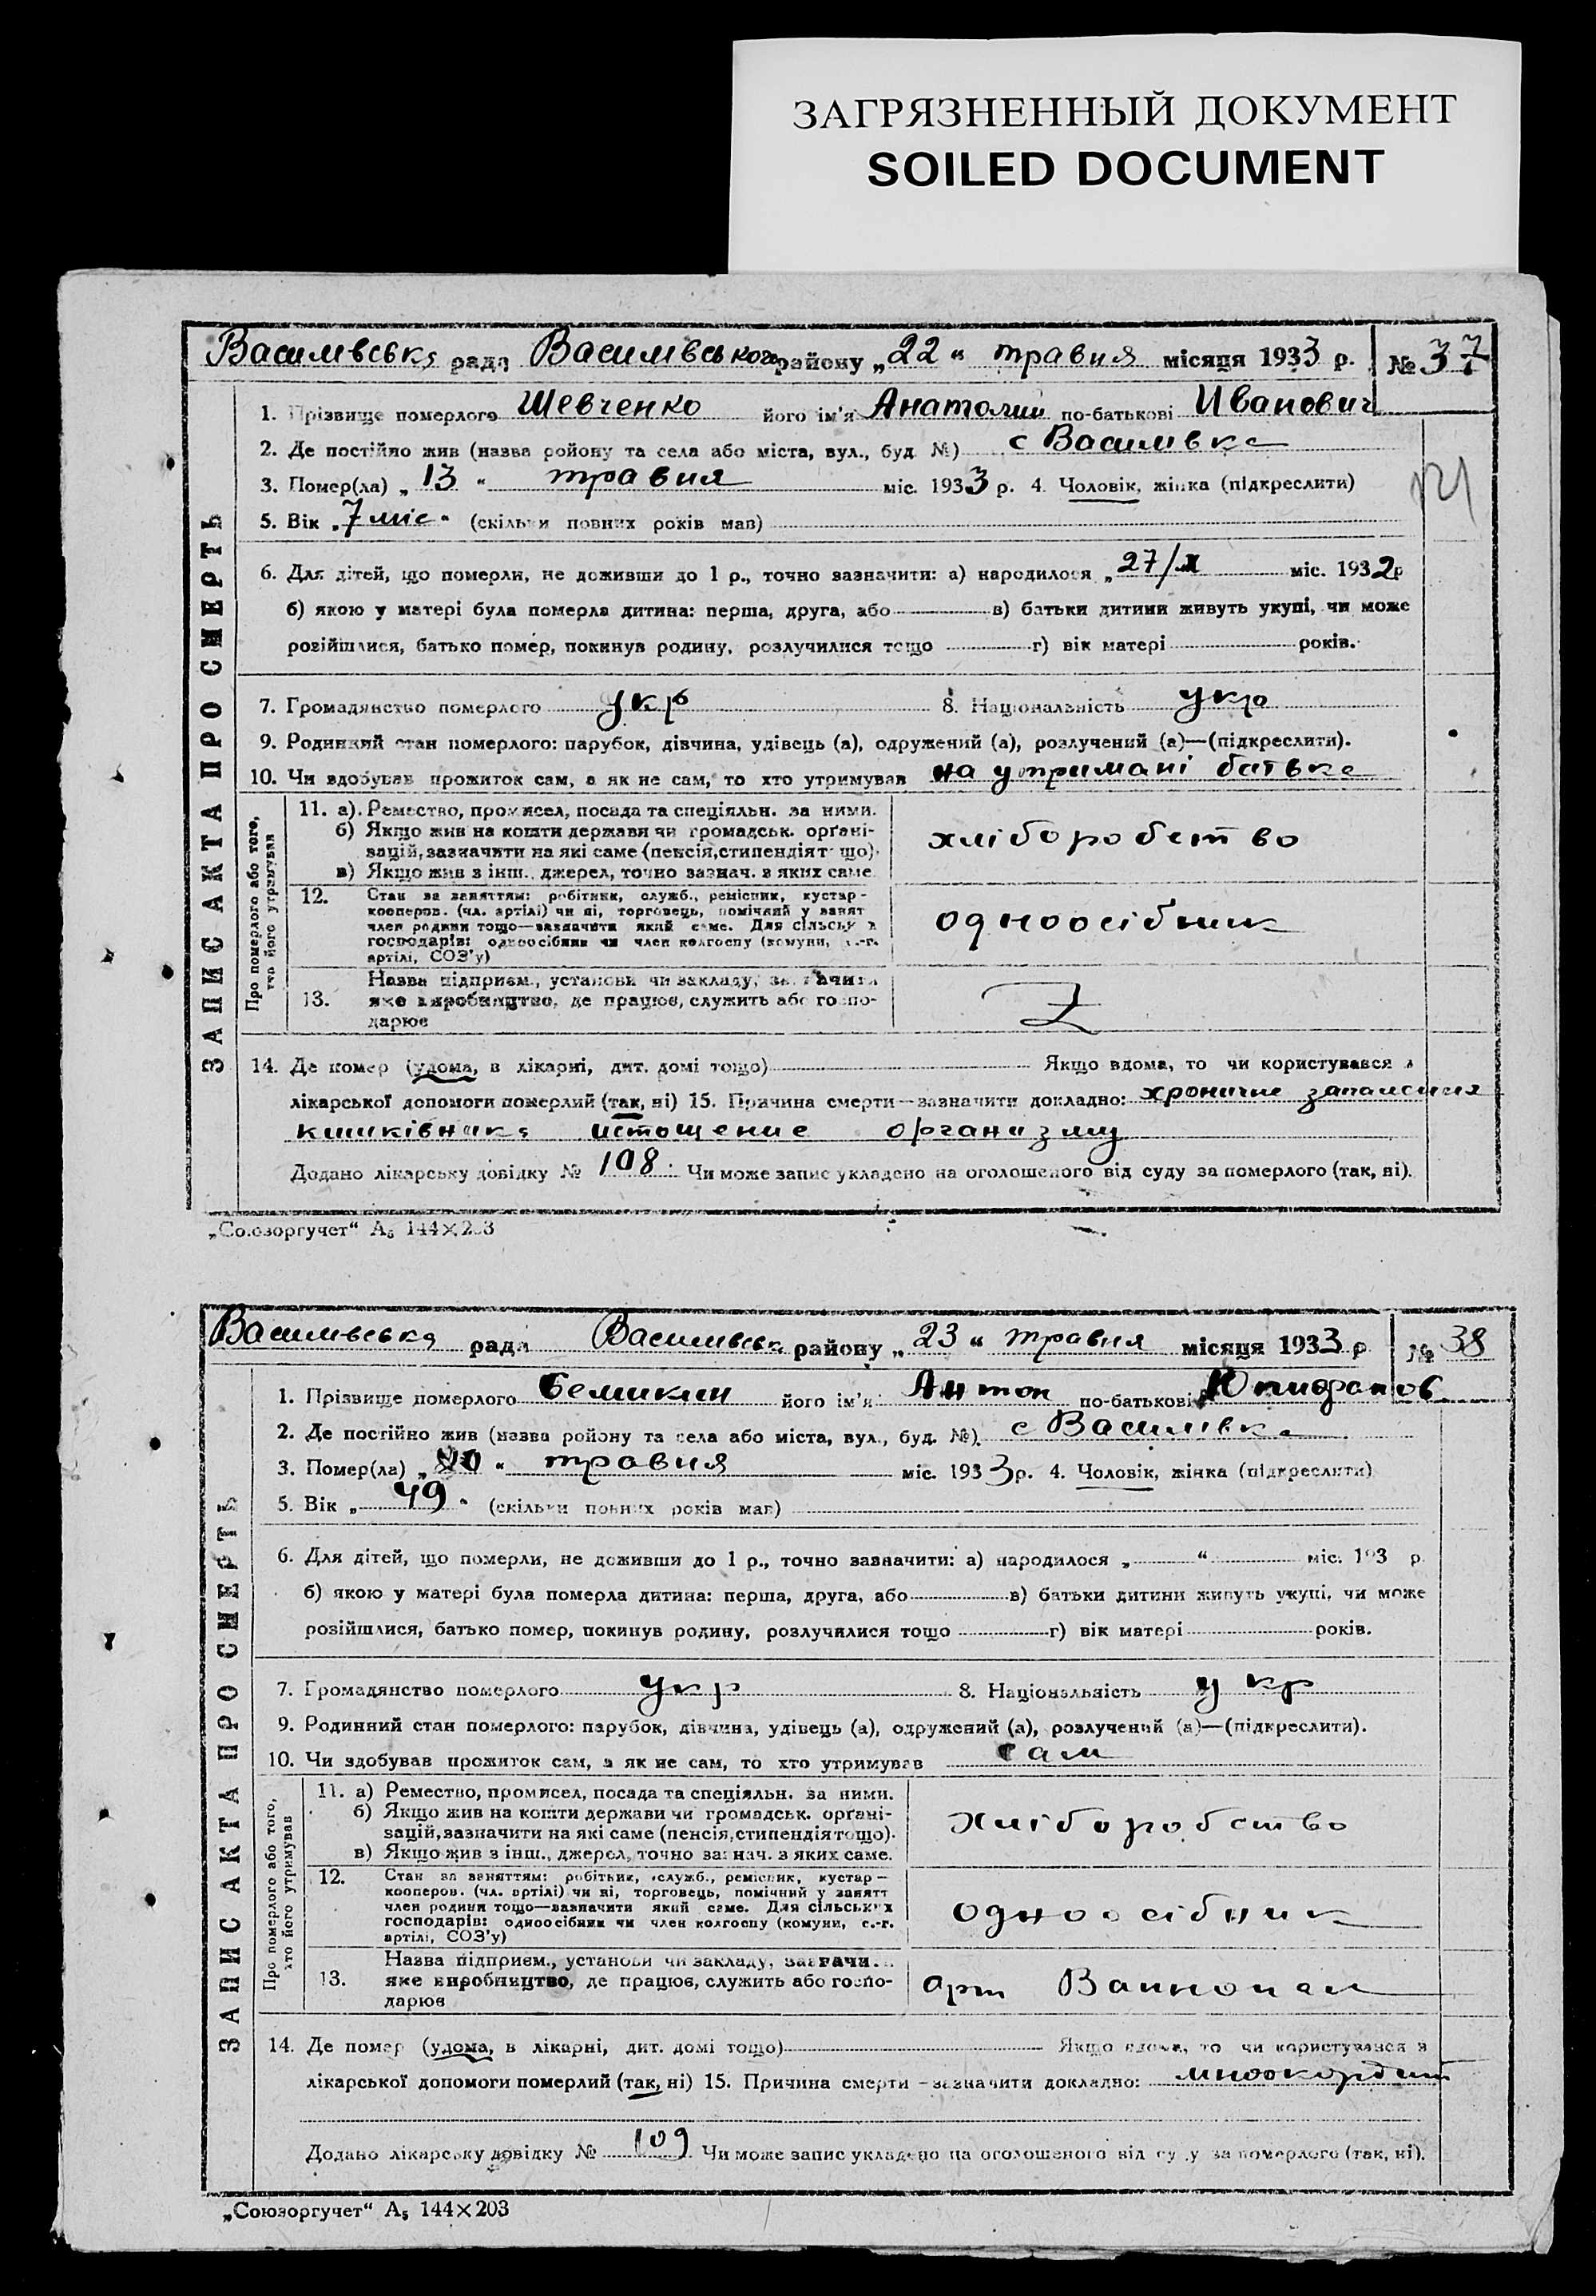 ЗАГРЯЗНЕННЫЙ ДОКУМЕНТ
SOILED DOCUMENT
Василівська рада Василівського району „22“ травня місяця 1933 р. № 37
ЗАПИС АКТА ПРО СМЕРТЬ
1. Прізвище померлого Шевченко його ім'я Анатолий по-батькові Иванович
2. Де постійно жив (назва ройону та села або міста, вул., буд №) с Василівка
3. Помер(ла) „13“ травня міс. 1933 р. 4. Чоловік, жінка (підкреслити)
5. Вік „7 міс“ (скільки повних років мав)
6. Для дітей, що померли, не доживши до 1 р., точно зазначити: а) народилося „27/X міс. 1932р
б) якою у матері була померла дитина: перша, друга, або в) батьки дитини живуть укупі, чи може
розійшлися, батько помер, покинув родину, розлучилися тощо г) вік матері років.
7. Громадянство померлого укр 8. Національність укр
9. Родинний стан померлого: парубок, дівчина, удівець (а), одружений (а), розлучений (а)—(підкреслити).
10. Чи здобував прожиток сам, а як не сам, то хто утримував на утримані батька
Про померлого або того, хто його утримував
11. а). Ремество, промисел, посада та спеціяльн. за ними.
б) Якщо жив на кошти держави чи громадськ. орґані-
зацій, зазначити на які саме (пенсія, стипендія тощо).
в) Якщо жив з інш., джерел, точно зазнач. з яких саме.
хліборобство
12. Стан за заняттям: робітник, служб., ремісник, кустар-
кооперов. (чл. артілі) чи ні, торговець, помічний у занят
член родини тощо—зазначити який саме. Для сільськ х
господарів: одноосібник чи член колгоспу (комуни, с.-г.
артілі, СОЗ'у)
одноосібник
13. Назва підприєм., установи чи закладу, зазначити
яке виробництво, де працює, служить або госпо-
дарює
14. Де помер (удома, в лікарні, дит. домі тощо) Якщо вдома, то чи користувався з
лікарської допомоги померлий (так, ні) 15. Причина смерти—зазначити докладно: хроничне запалення
кишківника истощение организму
Додано лікарську довідку № 108. Чи може запис укладено на оголошеного від суду за померлого (так, ні).
„Союзоргучет“ А₅ 144×203
Василівська рада Василівськ району „23“ травня місяця 1933 р № 38
ЗАПИС АКТА ПРО СМЕРТЬ
1. Прізвище померлого його ім'я Антон по-батькові
2. Де постійно жив (назва ройону та села або міста, вул., буд. №). с Василівка
3. Помер(ла) „20“ травня міс. 1933р. 4. Чоловік, жінка (підкреслити)
5. Вік „49“ (скільки повних років мав)
6. Для дітей, що померли, не доживши до 1 р., точно зазначити: а) народилося „ “ міс. 193 р.
б) якою у матері була померла дитина: перша, друга, або в) батьки дитини живуть укупі, чи може
розійшлися, батько помер, покинув родину, розлучилися тощо г) вік матері років.
7. Громадянство померлого укр 8. Національність укр
9. Родинний стан померлого: парубок, дівчина, удівець (а), одружений (а), розлучений (а)—(підкреслити).
10. Чи здобував прожиток сам, а як не сам, то хто утримував сам
Про померлого або того, хто його утримував
11. а) Ремество, промисел, посада та спеціяльн. за ними.
б) Якщо жив на кошти держави чи громадськ. орґані-
зацій, зазначити на які саме (пенсія, стипендія тощо).
в) Якщо жив з інш., джерел, точно зазнач. з яких саме.
хліборобство
12. Стан за заняттям: робітник, служб., ремісник, кустар—
кооперов. (чл. артілі) чи ні, торговець, помічний у занятт
член родини тощо—зазначити який саме. Для сільських
господарів: одноосібник чи член колгоспу (комуни, с.-г.
артілі, СОЗ'у)
одноосібник
13. Назва підприєм., установи чи закладу, зазначи.
яке виробництво, де працює, служить або госпо-
дарює
арт
14. Де помер (удома, в лікарні, дит. домі тощо) Якщо вдома, то чи користувався з
лікарської допомоги померлий (так, ні) 15. Причина смерти—зазначити докладно: миокордит
Додано лікарську довідку № 109 Чи може запис укладено на оголошеного від суду за померлого (так, ні).
„Союзоргучет“ А₅ 144×203